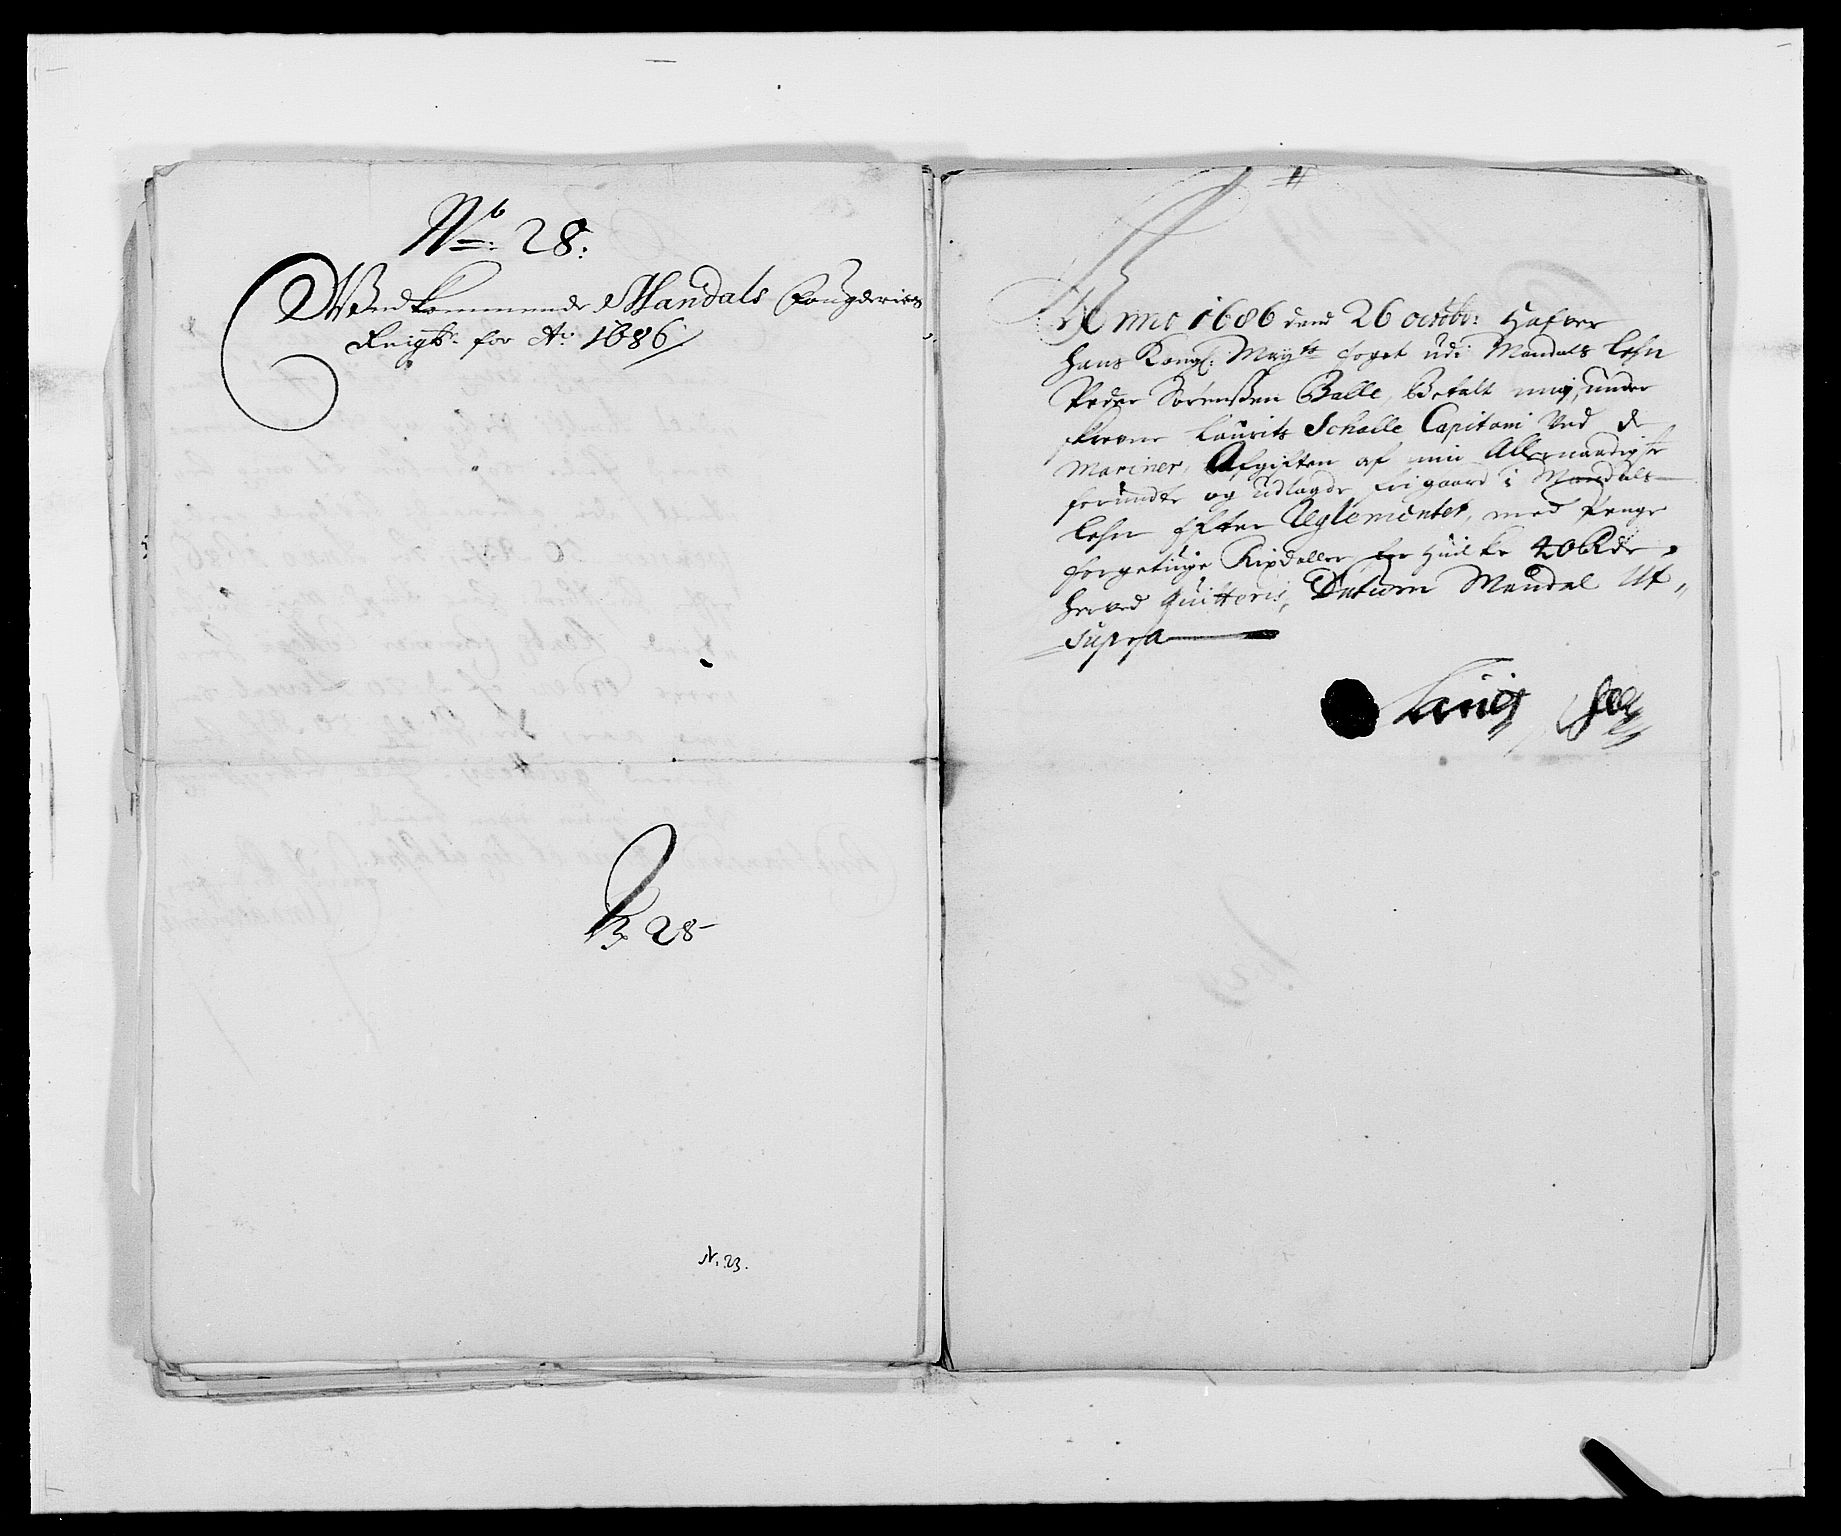 No: 28:
Vedkommende Mandals fougderies
Reigsk: for Ao: 1686
28
N. 23.
Anno 1686 dend 26 octobr: Hafver
Hans Kongl: Mayts foget udi Mandals lehn
Peder Sørenssen Balle, betalt mig, under
skrevne Laurits Scholle Capitain ved de
Mariner, Afgiften af min Allernaadigste
forundte og udlagde frigaard i Mandals
lehn efter Reglementet, med Penge
förgetiuge Rixdaller for huilke 40 Rdr
herved quitteris, Datum Mandal Ut
supra